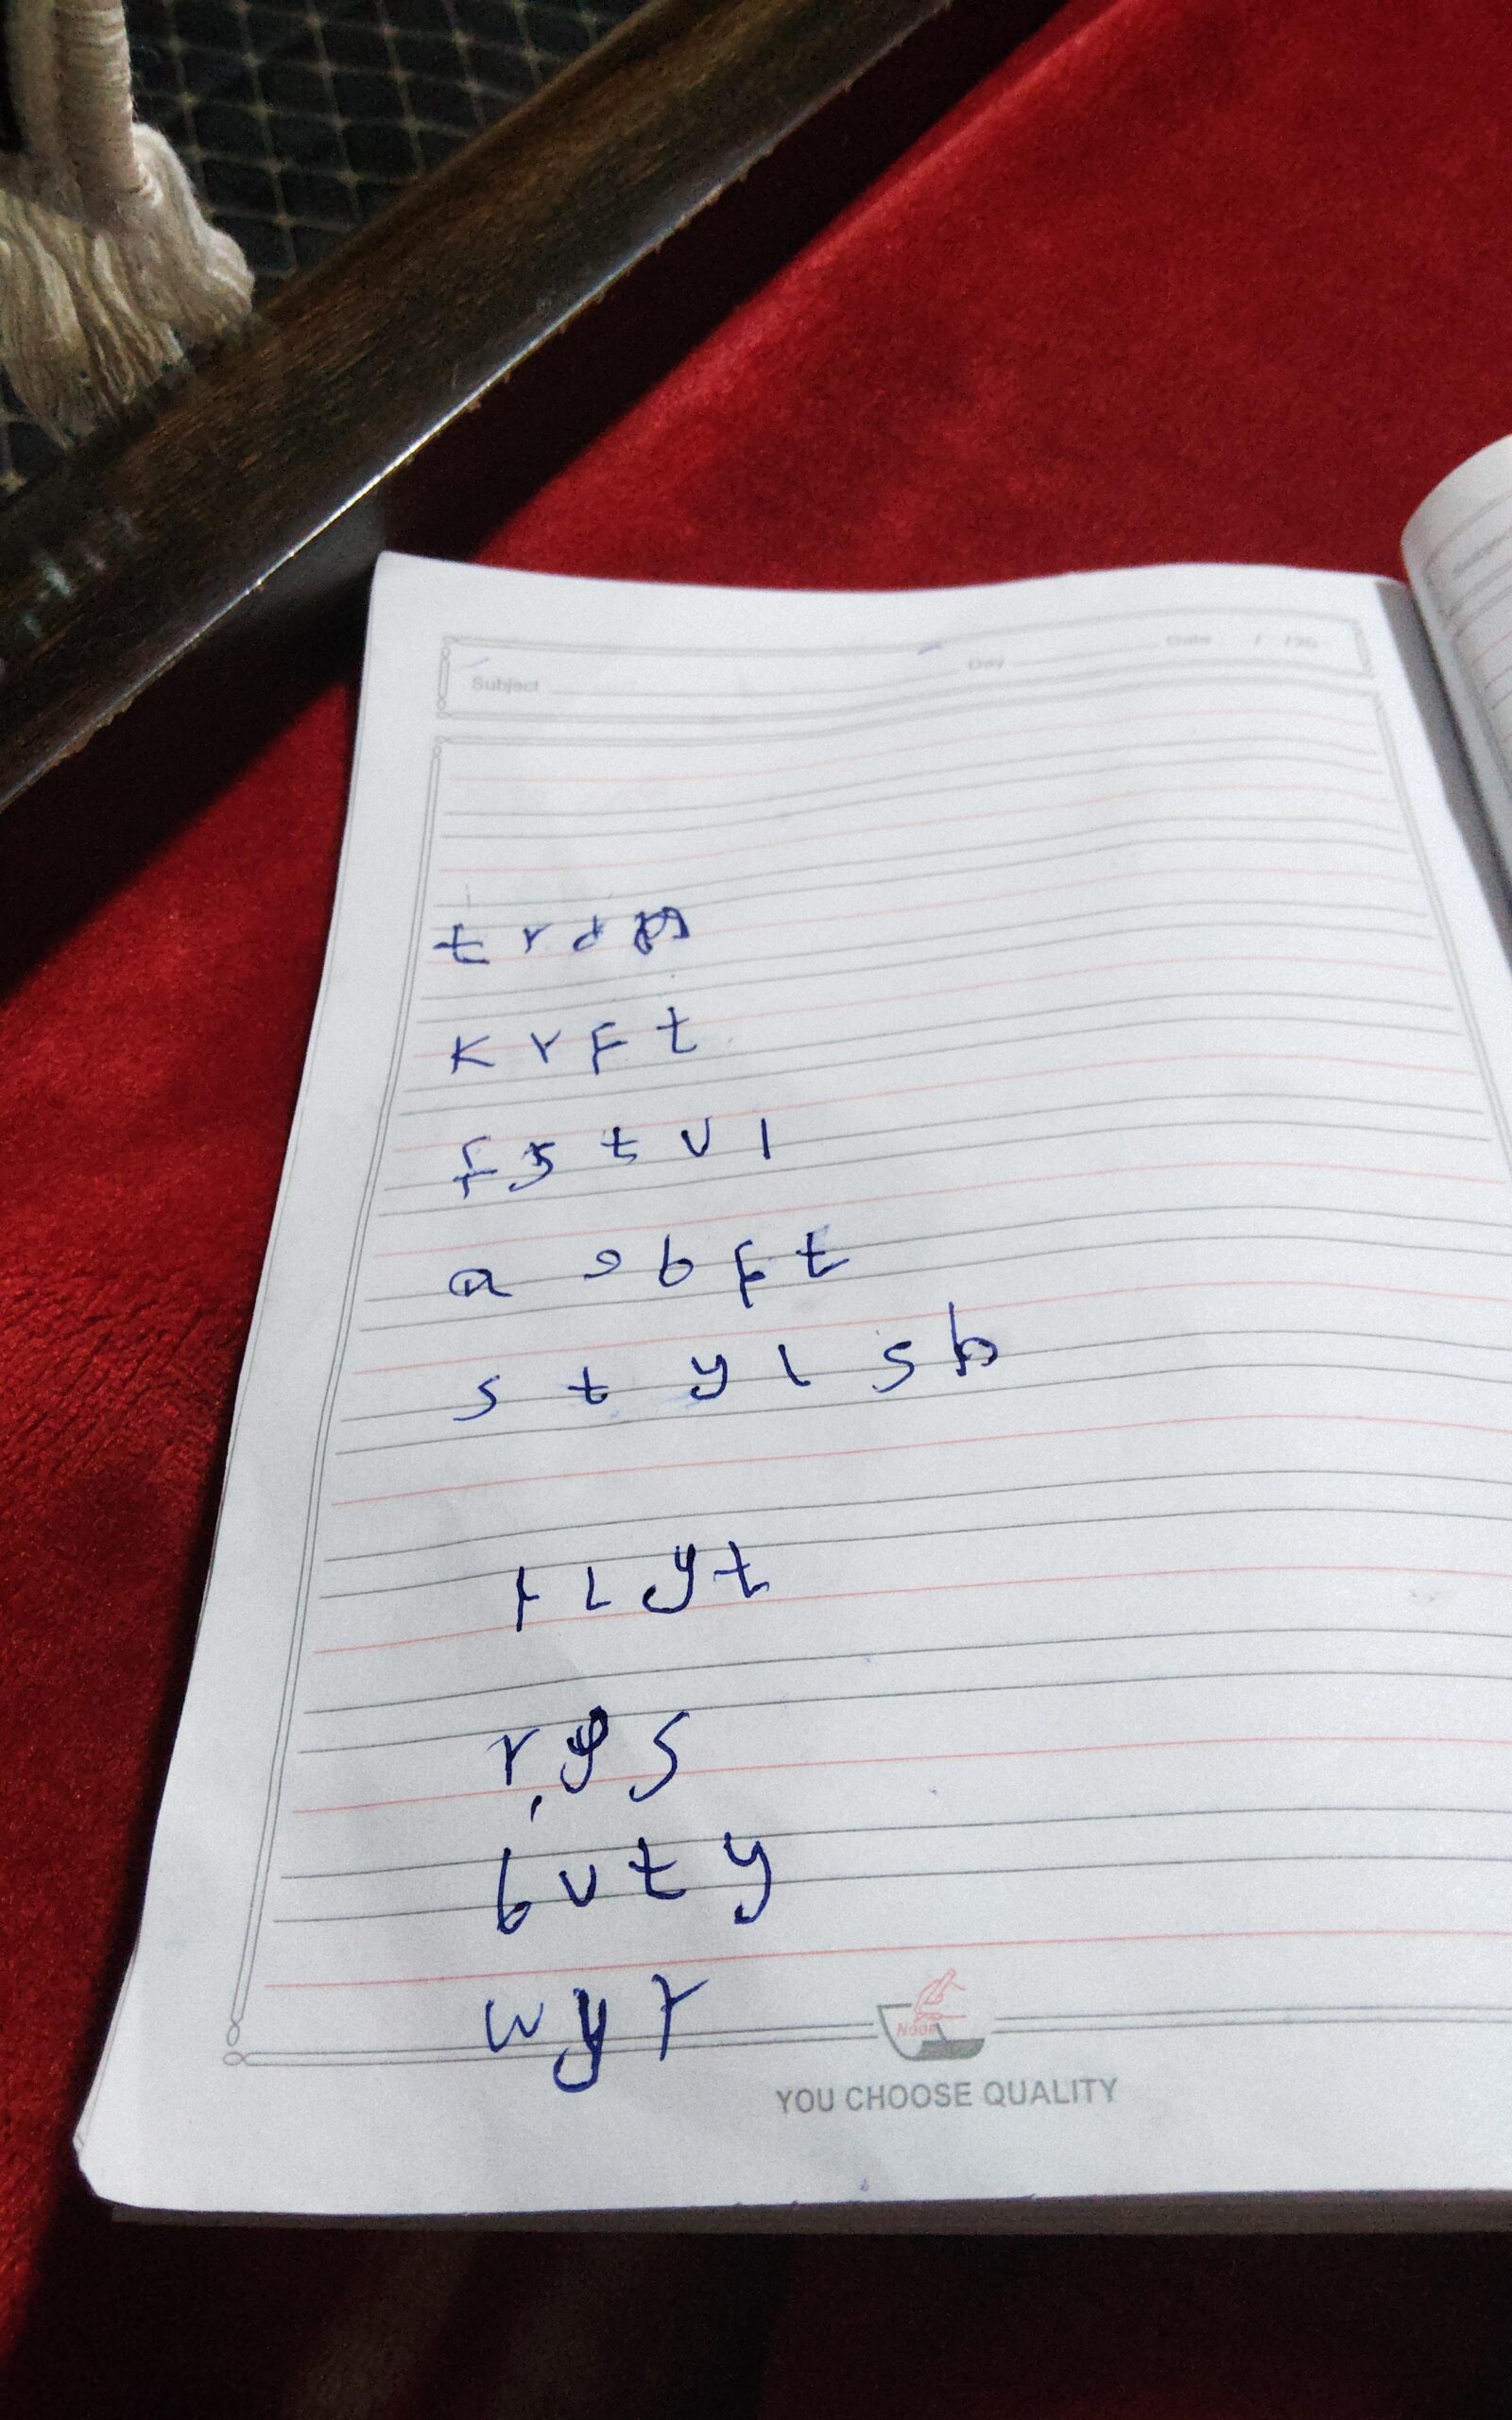 Subject Day Date / /20
t r d
K r F t
f s t u l
a s b f t
s t y l s h
r l y t
r y s
b u t y
w y r
NOOR
YOU CHOOSE QUALITY